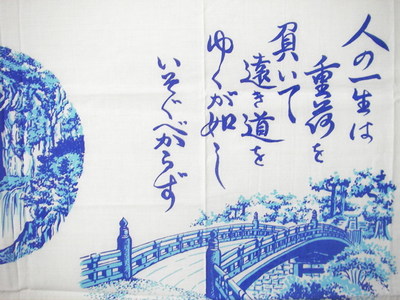 人の一生は
重荷を
負いて
遠き道を
ゆくが如し
いそぐべからず